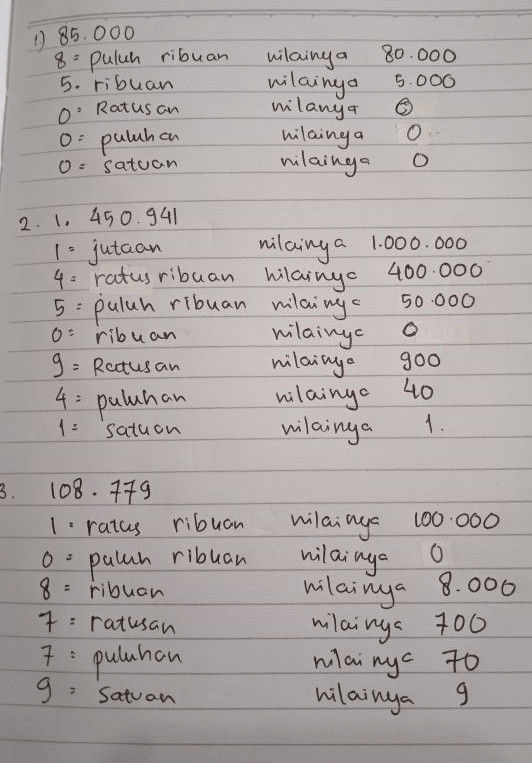 1) 85.000
8 = puluh ribuan nilainya 80.000
5. ribuan nilainya 5.000
0 = Ratusan nilanya 0
0 = puluhan nilainya 0
0 = satuan nilainya 0
2. 1. 450.941
1 = jutaan nilainya 1.000.000
4 = ratus ribuan nilainya 400.000
5 = puluh ribuan nilainya 50.000
0 = ribuan nilainya 0
9 = Ratusan nilainya 900
4 = puluhan nilainya 40
1 = satuan nilainya 1.
3. 108.779
1 = ratus ribuan nilainya 100.000
0 = puluh ribuan nilainya 0
8 = ribuan nilainya 8.000
7 = ratusan nilainya 700
7 = puluhan nilainya 70
9 = Satuan nilainya 9